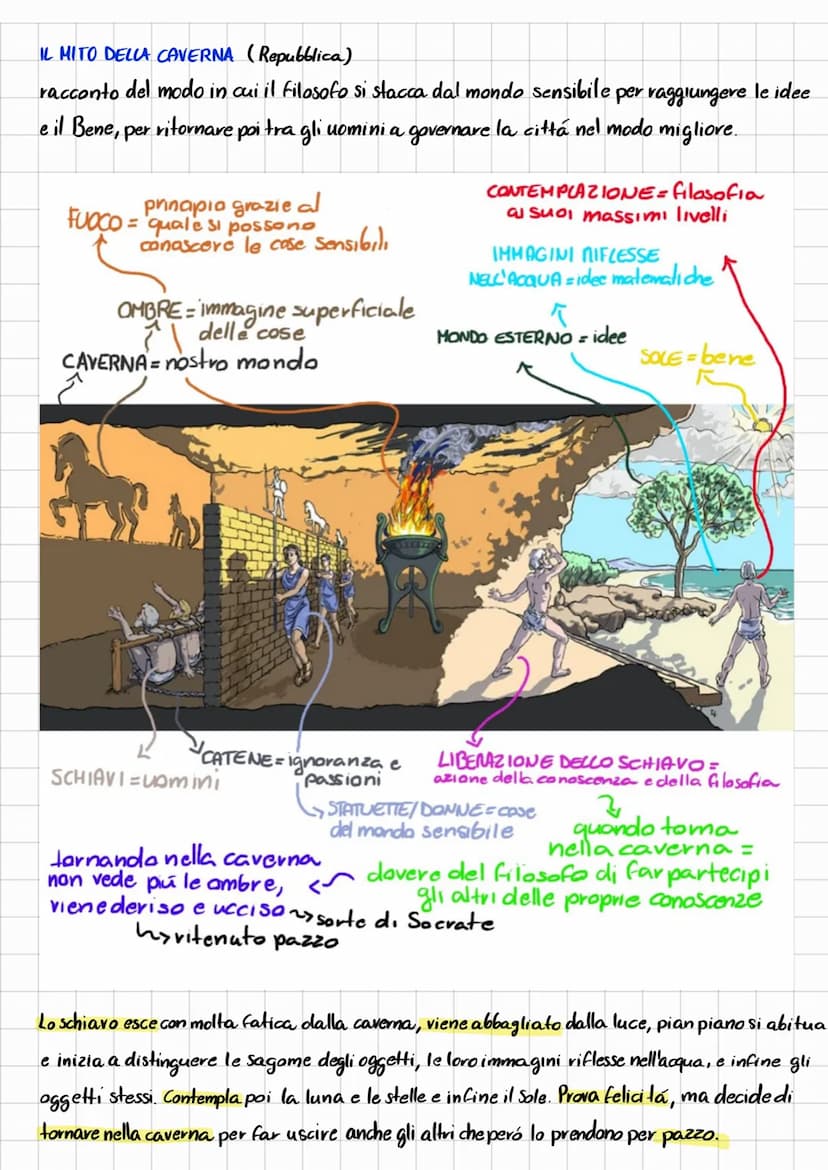 IL MITO DELLA CAVERNA (Repubblica)
racconto del modo in cui il filosofo si stacca dal mondo sensibile per raggiungere le idee
e il Bene, per ritornare poi tra gli uomini a governare la cittá nel modo migliore.
FUOCO = principio grazie al
quale si possono
conoscere le cose sensibili
CONTEMPLAZIONE = filosofia
ai suoi massimi livelli
IMMAGINI RIFLESSE
NELL'ACQUA = idee matematiche
OMBRE = immagine superficiale
delle cose
MONDO ESTERNO = idee
CAVERNA = nostro mondo
SOLE = bene
SCHIAVI = uomini
CATENE = ignoranza e
passioni
LIBERAZIONE DELLO SCHIAVO =
azione della conoscenza e della filosofia
STATUETTE/DONNE = cose
del mondo sensibile
quando torna
nella caverna =
dovere del filosofo di far partecipi
gli altri delle proprie conoscenze
tornando nella caverna
non vede piú le ombre,
viene deriso e ucciso ~> sorte di Socrate
↳ ritenuto pazzo
Lo schiavo esce con molta fatica dalla caverna, viene abbagliato dalla luce, pian piano si abitua
e inizia a distinguere le sagome degli oggetti, le loro immagini riflesse nell'acqua, e infine gli
oggetti stessi. Contempla poi la luna e le stelle e infine il Sole. Prova felicitá, ma decide di
tornare nella caverna per far uscire anche gli altri che peró lo prendono per pazzo.